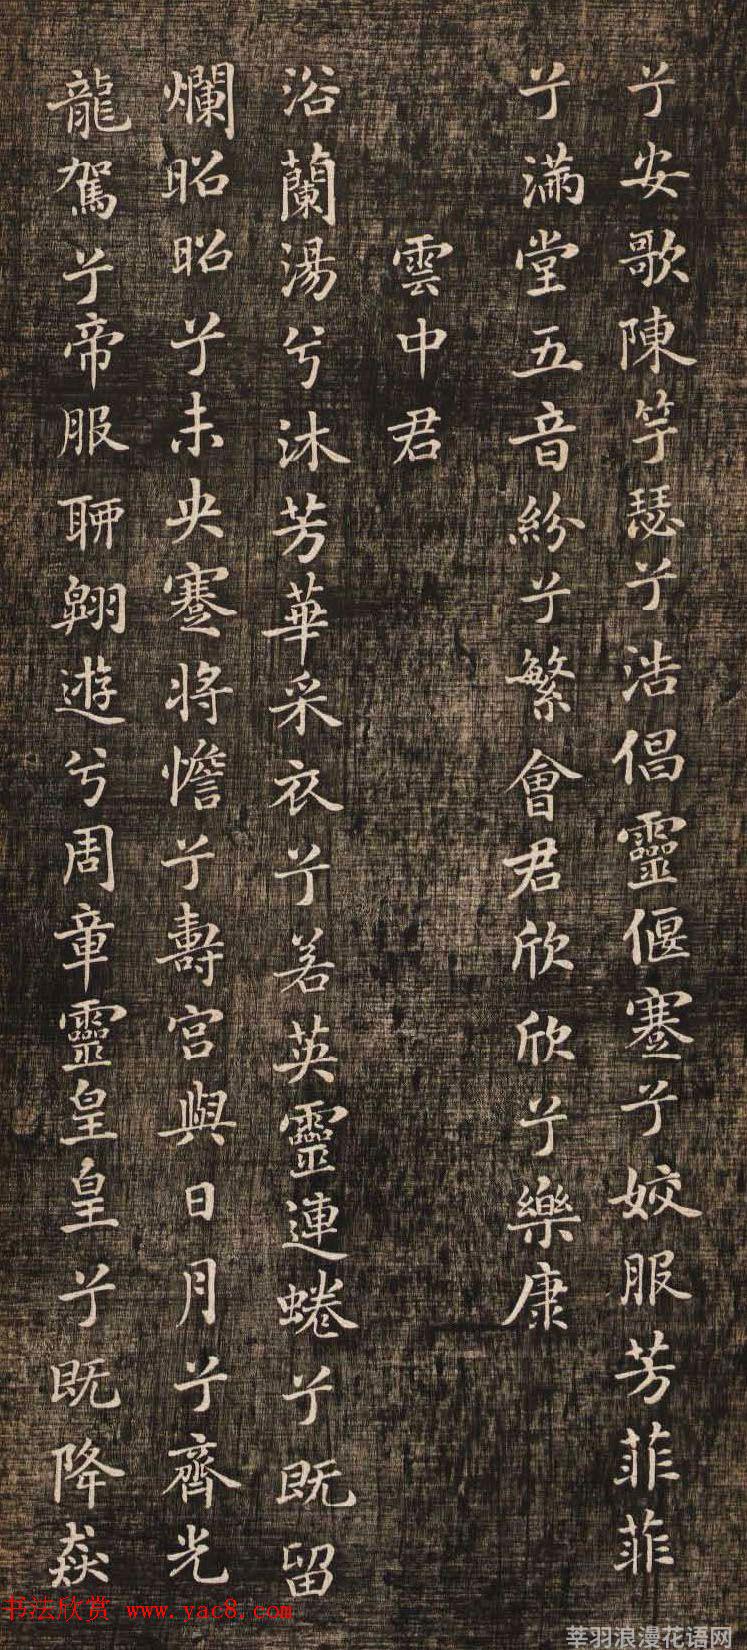 兮安歌陳竽瑟兮浩倡靈偃蹇兮姣服芳菲菲
兮滿堂五音紛兮繁會君欣欣兮樂康
雲中君
浴蘭湯兮沐芳華采衣兮若英靈連蜷兮既留
爛昭昭兮未央蹇將憺兮壽宮與日月兮齊光
龍駕兮帝服聊翱遊兮周章靈皇皇兮既降猋
书法欣赏 www.yac8.com
莘羽浪漫花语网